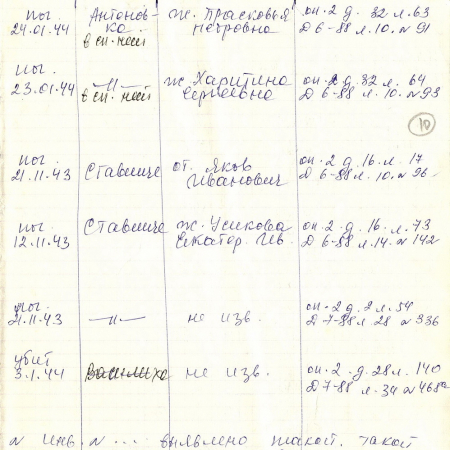 пог. Антонов- ж. Прасковья оп. 2 д. 32 л. 63
24.01.44 ка. Петровна Д 6-88 л. 10. № 91
в сп. наси
пог. —"— ж. Харитина оп. 2 д. 32 л. 64
23.01.44 в сп. наси Сергеевна Д 6-88 л. 10. № 93
10
пог. Ставище от. Яков оп. 2 д. 16 л. 17
21.11.43 Иванович Д 6-88 л. 10. № 96
пог. Ставище ж. Усикова оп. 2 д. 16 л. 73
12.11.43 Екатер. Ив. Д 6-88 л. 14. № 142
пог. оп. 2 д. 2 л. 54
21.11.43 —"— не изв. Д 7-88 л. 28 № 336
убит оп. 2 д. 28 л. 140
3.1.44 не изв. Д 7-88 л. 34 № 468а
№ инв. № ... выявлено такой. такой